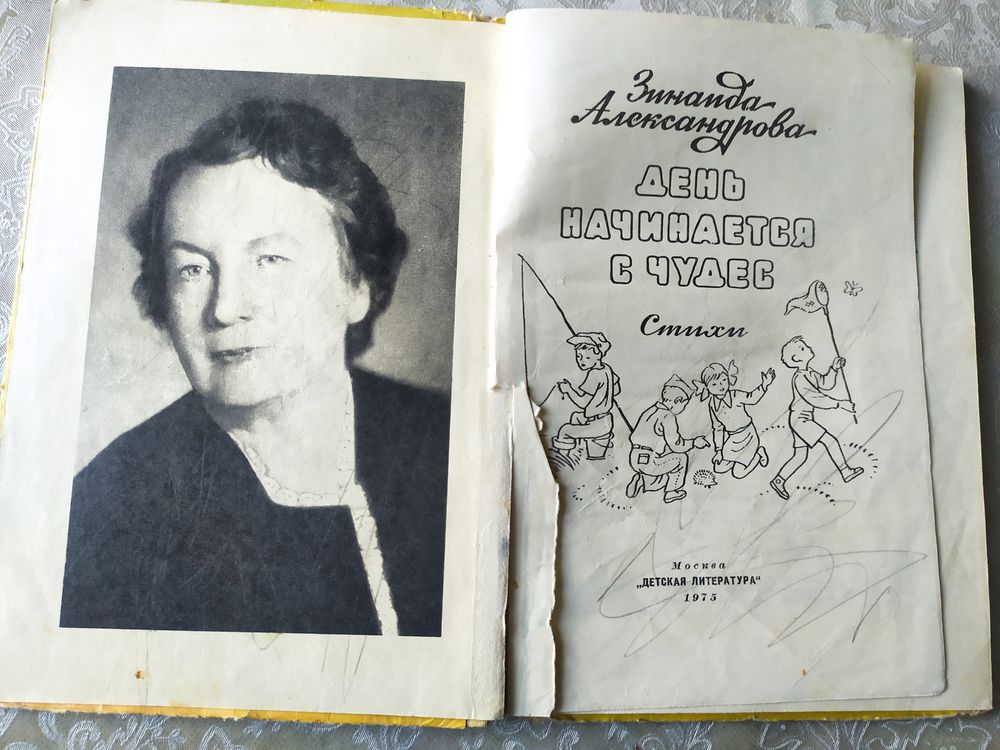 Зинаида
Александрова
ДЕНЬ
НАЧИНАЕТСЯ
С ЧУДЕС
Стихи
Москва
„ДЕТСКАЯ ЛИТЕРАТУРА“
1975